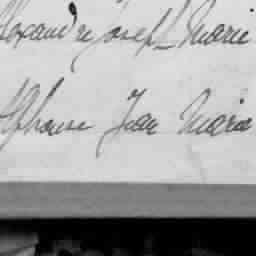 Alexandre Josef Marie
Alphonse Jean Maria